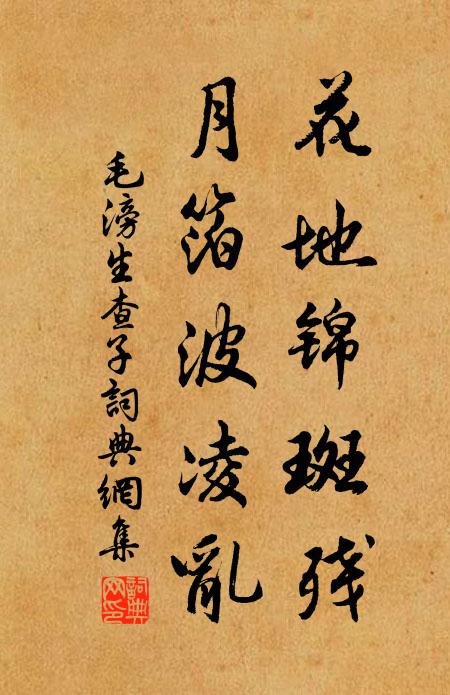 花地锦斑残
月箔波凌亂
毛滂生查子詞典網集
詞典网印